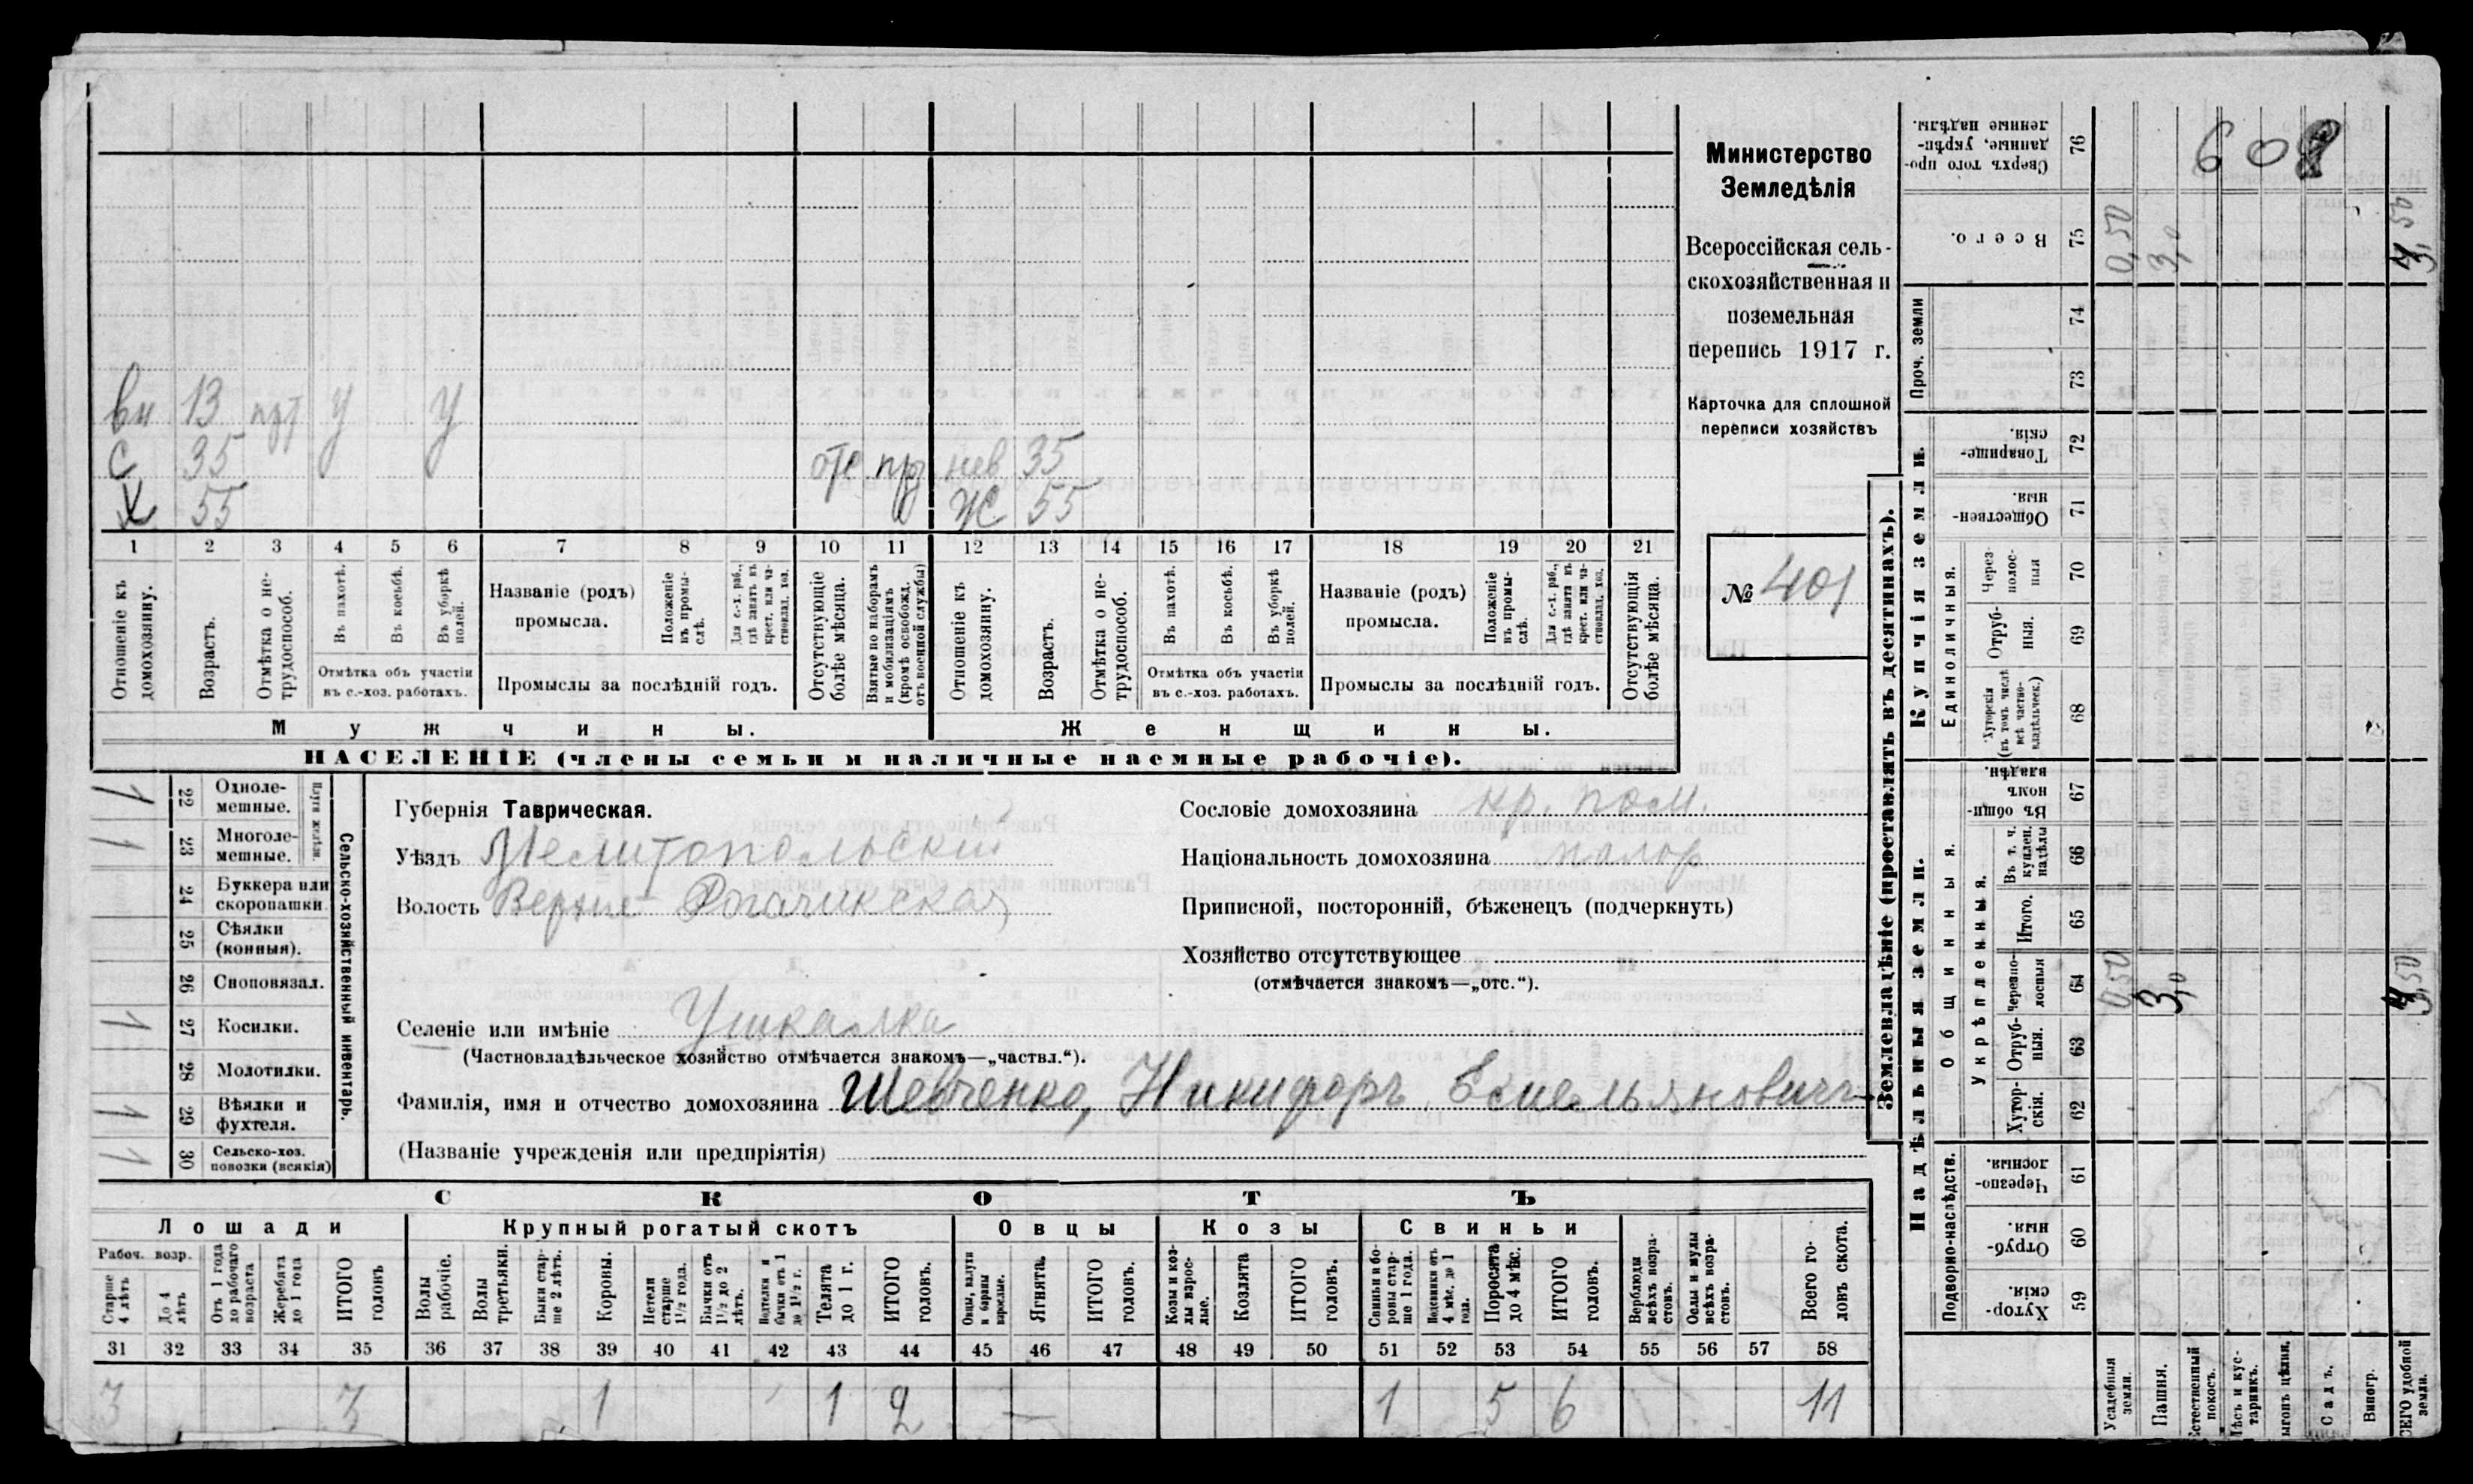 Министерство
Земледѣлія
Всероссійская сель-
скохозяйственная и
поземельная
перепись 1917 г.
Карточка для сплошной
переписи хозяйствъ
№ 401
вн 13 у у
С 35 отс нев 35
Х 55 Ж 55
1 2 3 4 5 6 7 8 9 10 11 12 13 14 15 16 17 18 19 20 21
Отношеніе къ домохозяину.
Возрастъ.
Отмѣтка о не-трудоспособ.
Въ пахотѣ.
Въ косьбѣ.
Въ уборкѣ полей.
Отмѣтка объ участіи
въ с.-хоз. работахъ.
Названіе (родъ)
промысла.
Положеніе въ промы-слѣ.
Для с.-х. раб., гдѣ занятъ въ крест. или ча-стновлад. хоз.
Промыслы за послѣдній годъ.
Отсутствующіе болѣе мѣсяца.
Взятые по наборамъ и мобилизаціямъ (кромѣ освобожд. отъ военной службы)
Отношеніе къ домохозяину.
Возрастъ.
Отмѣтка о не-трудоспособ.
Въ пахотѣ.
Въ косьбѣ.
Въ уборкѣ полей.
Отмѣтка объ участіи
въ с.-хоз. работахъ.
Названіе (родъ)
промысла.
Положеніе въ промы-слѣ.
Для с.-х. раб., гдѣ занята въ крест. или ча-стновлад. хоз.
Промыслы за послѣдній годъ.
Отсутствующія болѣе мѣсяца.
Мужчины.
Женщины.
НАСЕЛЕНІЕ (члены семьи и наличные наемные рабочіе).
Сельско-хозяйственный инвентарь.
Плуги желѣзн.
1 22 Одноле-мешные.
1 23 Многоле-мешные.
24 Буккера или скоропашки
25 Сѣялки (конныя).
26 Сноповязал.
1 27 Косилки.
28 Молотилки.
1 29 Вѣялки и фухтеля.
1 30 Сельско-хоз. повозки (всякія)
Губернія Таврическая.
Уѣздъ Мелитопольскій
Волость Верхне-Рогачикская
Сословіе домохозяина кр. пом.
Національность домохозяина малор
Приписной, посторонній, бѣженецъ (подчеркнуть)
Хозяйство отсутствующее
(отмѣчается знакомъ—„отс.“).
Селеніе или имѣніе Ушкалка
(Частновладѣльческое хозяйство отмѣчается знакомъ—„частвл.“).
Фамилія, имя и отчество домохозяина Шевченко, Никифоръ Емельяновичъ
(Названіе учрежденія или предпріятія)
СКОТЪ
Лошади Крупный рогатый скотъ Овцы Козы Свиньи
Рабоч. возр.
Старше 4 лѣтъ
До 4 лѣтъ
Отъ 1 года до рабочаго возраста
Жеребята до 1 года
ИТОГО головъ
Волы рабочіе.
Волы третьяки.
Быки стар-ше 2 лѣтъ.
Коровы.
Нетели старше 1½ года.
Бычки отъ 1½ до 2 лѣтъ.
Подтелки и бычки отъ 1 до 1½ г.
Телята до 1 г.
ИТОГО головъ.
Овцы, валухи и бараны взрослые.
Ягнята.
ИТОГО головъ.
Козы и коз-лы взрос-лые.
Козлята
ИТОГО головъ.
Свиньи и бо-ровы стар-ше 1 года.
Подсвинки отъ 4 мѣс. до 1 года.
Поросята до 4 мѣс.
ИТОГО головъ.
Верблюды всѣхъ возра-стовъ.
Ослы и мулы всѣхъ возра-стовъ.
Всего го-ловъ скота.
31 32 33 34 35 36 37 38 39 40 41 42 43 44 45 46 47 48 49 50 51 52 53 54 55 56 57 58
3 3 1 1 2 — 1 5 6 11
Землевладѣніе (проставлять въ десятинахъ).
Надѣльныя земли.
Подворно-наслѣдств.
Хутор-скія. 59
Отруб-ныя. 60
Черезпо-лосныя. 61
Общинныя.
Укрѣпленныя.
Хутор-скія. 62
Отруб-ныя. 63
Черезпо-лосныя 64 0,50 3,0
Итого. 65
Въ т. ч. куплен. надѣлы 66
Въ общин-номъ владѣн. 67
Купчія земли.
Единоличныя.
Хуторскія (въ томъ числѣ всѣ частно-владѣльческ.) 68
Отруб-ныя. 69
Через-полос-ныя 70
Обществен-ныя. 71
Товарище-скія. 72
Проч. земли
73
74
Всего. 75 0,50 3,0
Сверхъ того про-данные, укрѣп-ленные надѣлы. 76
Усадебныя земли.
Пашня.
Естественный покосъ.
Лѣсъ и кус-тарникъ.
Выгонъ цѣлин.
Садъ.
Виногр.
ВСЕГО удобной земли.